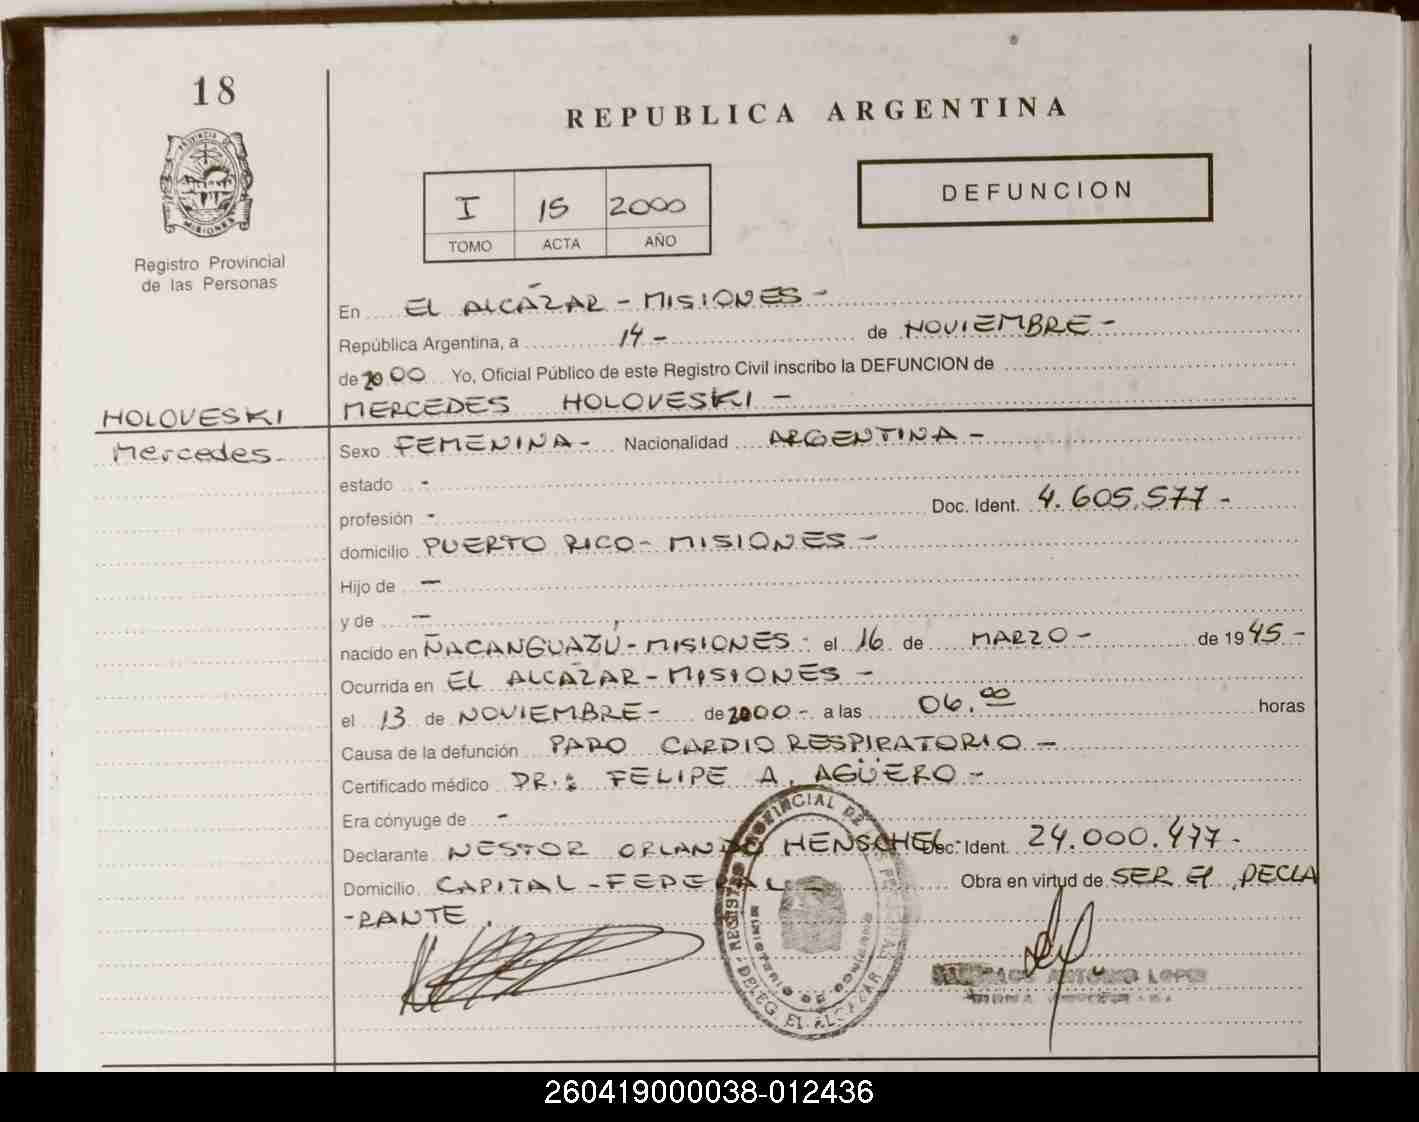 18
REPUBLICA ARGENTINA
I 15 2000
TOMO ACTA AÑO
DEFUNCION
Registro Provincial
de las Personas
En EL ALCÁZAR - MISIONES -
República Argentina, a 14 - de NOVIEMBRE -
de 2000 Yo, Oficial Público de este Registro Civil inscribo la DEFUNCION de
MERCEDES HOLOVESKI -
HOLOVESKI
Mercedes.
Sexo FEMENINA - Nacionalidad ARGENTINA -
estado -
profesión - Doc. Ident. 4.605.577 -
domicilio PUERTO RICO - MISIONES -
Hijo de -
y de -
nacido en ÑACANGUAZÚ - MISIONES. el 16 de MARZO - de 1945 -
Ocurrida en EL ALCÁZAR - MISIONES -
el 13 de NOVIEMBRE - de 2000 - a las 06.00 horas
Causa de la defunción PARO CARDIO RESPIRATORIO -
Certificado médico DR.: FELIPE A. AGÜERO -
Era cónyuge de -
Declarante NESTOR ORLANDO HENSCHEL Doc. Ident. 24.000.477 -
Domicilio CAPITAL - FEDERAL - Obra en virtud de SER El DECLA
-RANTE.
REGISTRO PROVINCIAL DE LAS PERSONAS
MINISTERIO DE GOBIERNO
DELEG. EL ALCAZAR
ANTONIO LOPEZ
260419000038-012436